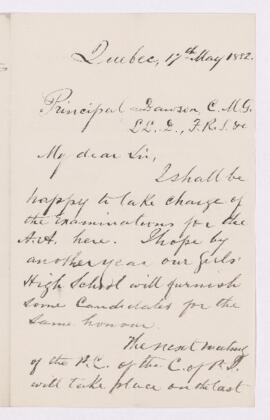 Quebec, 17th May 1882.
Principal Dawson, C.M.G.
LL.D., F.R.S. &c
My dear Sir,
I shall be
happy to take charge of
the Examinations for the
A.A. here. I hope by
another year our Girls'
High School will furnish
some Candidates for the
same honour.
The next meeting
of the P.C. of the C. of P.I.
will take place on the last